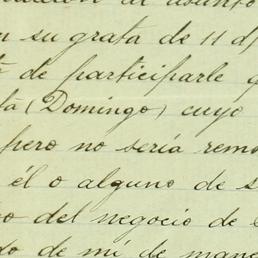 al asunto
n su grata de 11 d
de participarle q
ta (Domingo) cuyo
pero no sería remo
él o alguno de s
o del negocio de e
do de mí de mane